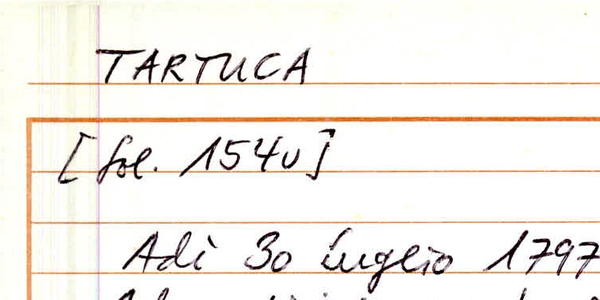 TARTUCA
[fol. 154v]
Adì 30 Luglio 1797